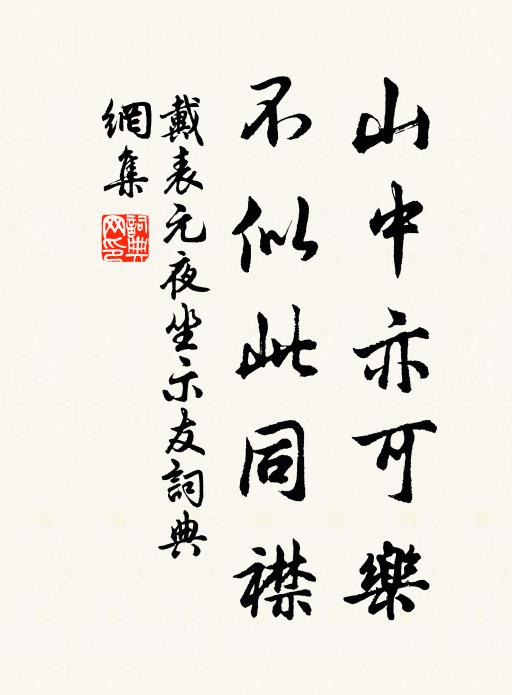 山中亦可樂
不似此同襟
戴表元夜坐示友詞典
網集
詞典
網印